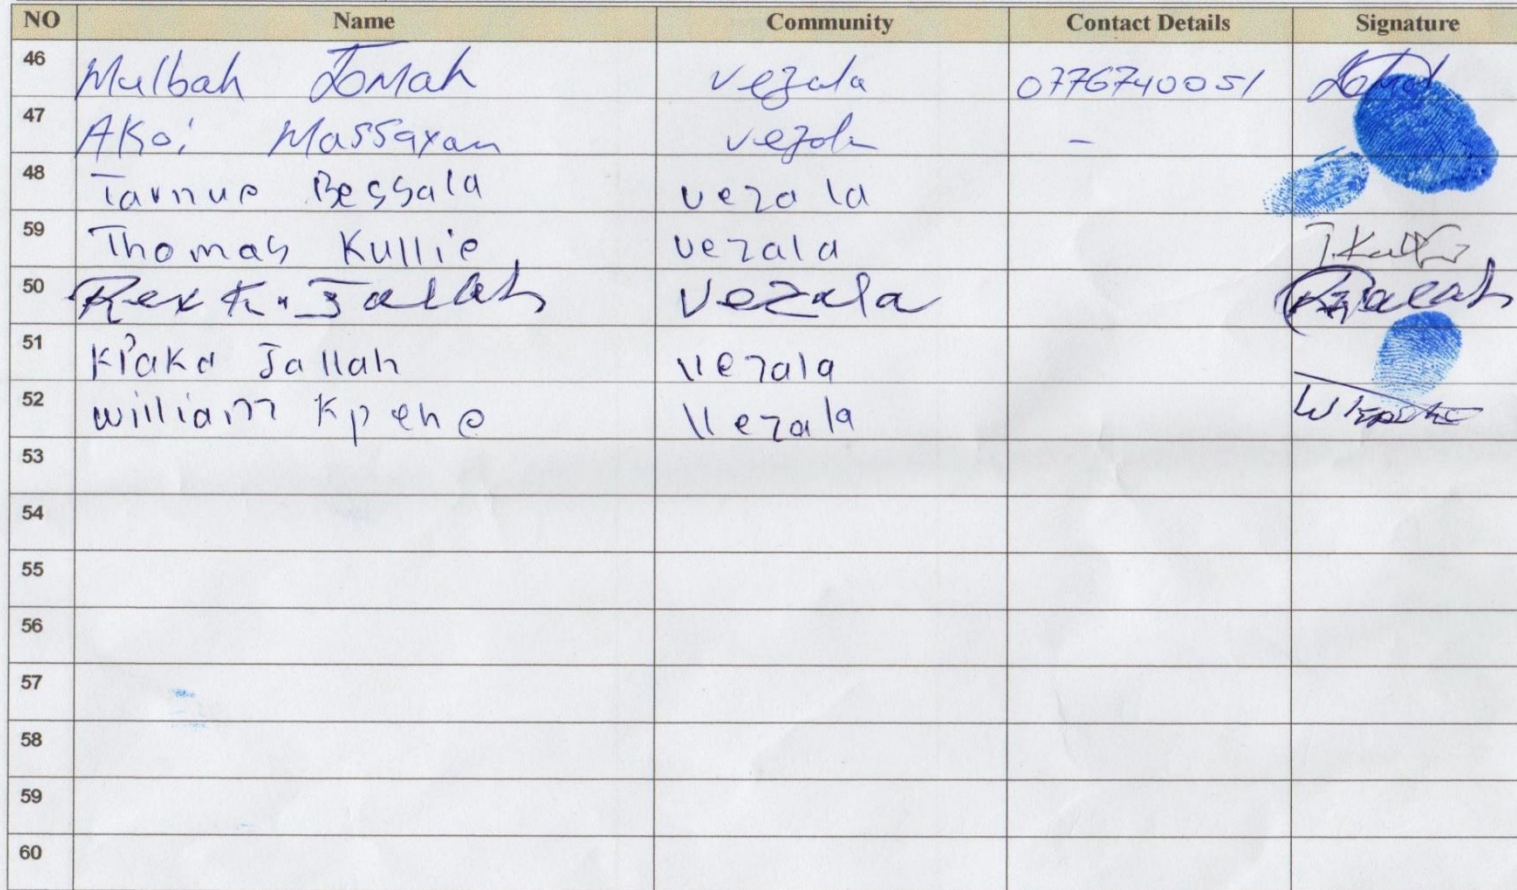 NO Name Community Contact Details Signature
46 Mulbah Zomah vezala 0776740051
47 AKoi Massayan vezala -
48 Tarnue Bessala vezala
59 Thomas Kullie vezala T.Kullie
50 Rex K. Jallah Vezala RKJallah
51 KPaka Jallah vezala
52 William Kpehe vezala
53
54
55
56
57
58
59
60